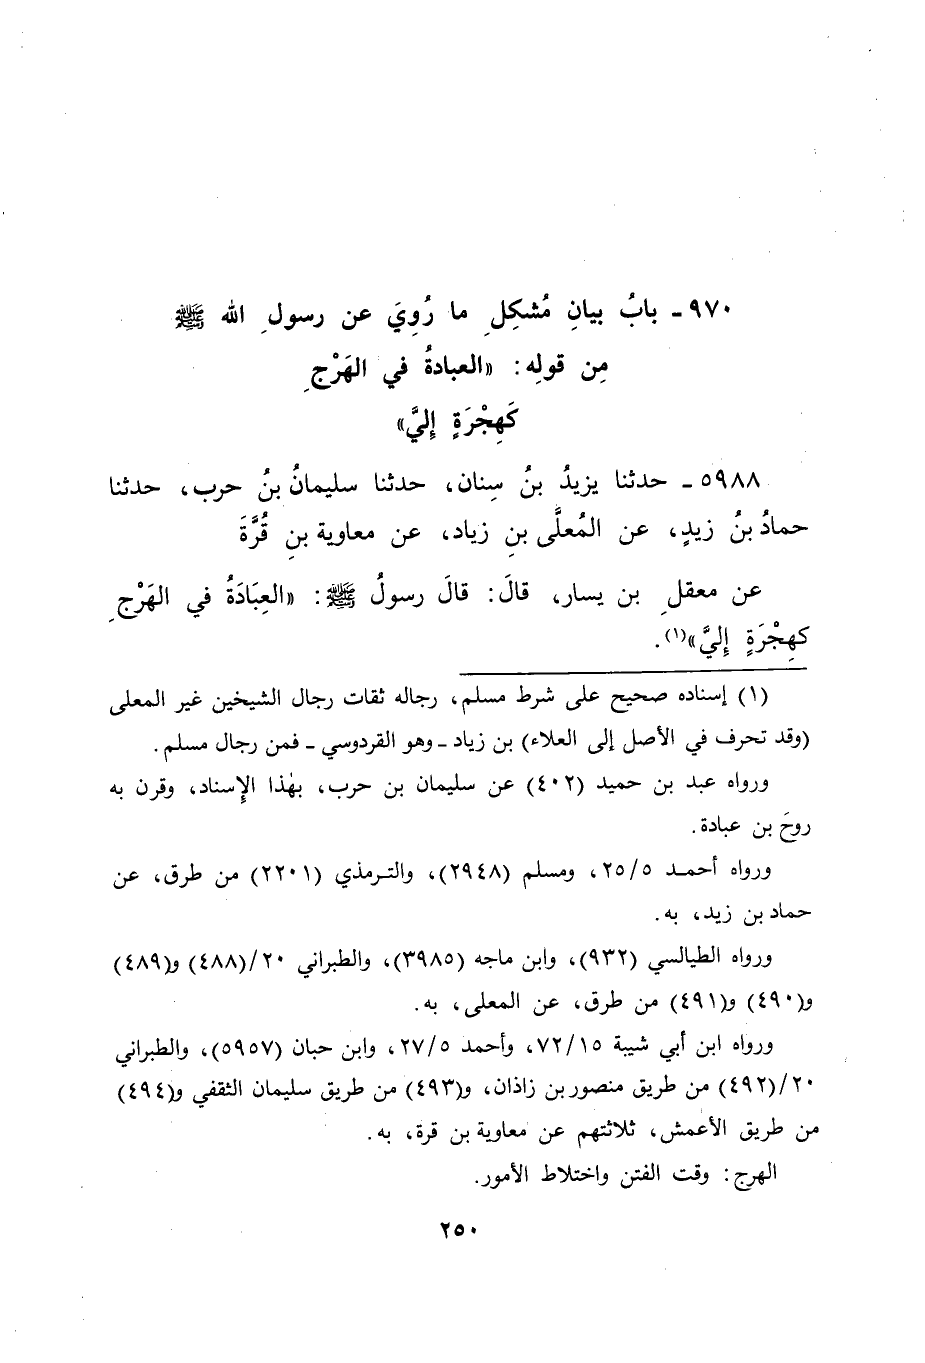 ٩٧٠ ـ بابُ بيانِ مُشكِلِ ما رُوِيَ عن رسولِ الله ﷺ
مِن قولِه: «العبادةُ في الهَرْجِ
كَهِجْرَةٍ إِليَّ»
٥٩٨٨ ـ حدثنا يزيدُ بنُ سِنان، حدثنا سليمانُ بنُ حرب، حدثنا
حمادُ بنُ زيدٍ، عن المُعلَّى بنِ زياد، عن معاوية بنِ قُرَّةَ
عن معقلِ بن يسار، قالَ: قالَ رسولُ ﷺ: «العِبَادَةُ في الهَرْجِ
كهِجْرَةٍ إِليَّ»(١).
(١) إسناده صحيح على شرط مسلم، رجاله ثقات رجال الشيخين غير المعلى
(وقد تحرف في الأصل إلى العلاء) بن زياد ـ وهو القردوسي ـ فمن رجال مسلم.
ورواه عبد بن حميد (٤٠٢) عن سليمان بن حرب، بهٰذا الإِسناد، وقرن به
روحَ بن عبادة.
ورواه أحمـد ٢٥/٥، ومسلم (٢٩٤٨)، والتـرمذي (٢٢٠١) من طرق، عن
حماد بن زيد، به.
ورواه الطيالسي (٩٣٢)، وابن ماجه (٣٩٨٥)، والطبراني ٢٠/(٤٨٨) و(٤٨٩)
و(٤٩٠) و(٤٩١) من طرق، عن المعلى، به.
ورواه ابن أبي شيبة ٧٢/١٥، وأحمد ٢٧/٥، وابن حبان (٥٩٥٧)، والطبراني
٢٠/(٤٩٢) من طريق منصور بن زاذان، و(٤٩٣) من طريق سليمان الثقفي و(٤٩٤)
من طريق الأعمش، ثلاثتهم عن معاوية بن قرة، به.
الهرج: وقت الفتن واختلاط الأمور.
٢٥٠